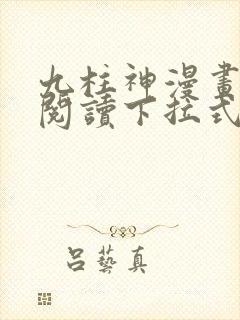 九柱神漫畫
閱讀下拉式
呂藝真